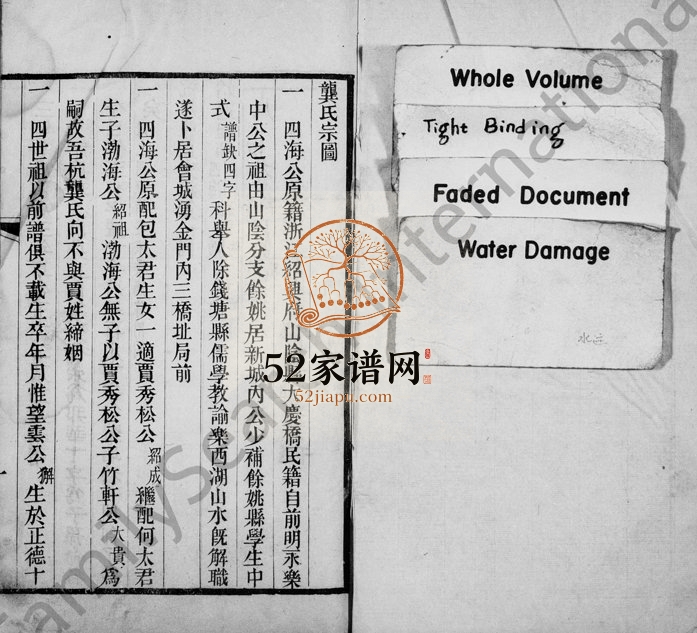 龔氏宗圖
一 四海公原籍浙江紹興府山陰縣大慶橋民籍自前明永樂
中公之祖由山陰分支餘姚居新城內公少補餘姚縣學生中
式 譜缺四字 科舉人除錢塘縣儒學教諭樂西湖山水旣解職
遂卜居會城湧金門內三橋址局前
一 四海公原配包太君生女一適賈秀松公 紹成 繼配何太君
生子渤海公 紹祖 渤海公無子以賈秀松公子竹軒公 大貴 爲
嗣故吾杭龔氏向不與賈姓締姻
一 四世祖以前譜俱不載生卒年月惟望雲公 獬 生於正德十
Whole Volume
Tight Binding
Faded Document
Water Damage
水
52家谱网
52jiapu.com
FamilySearch International